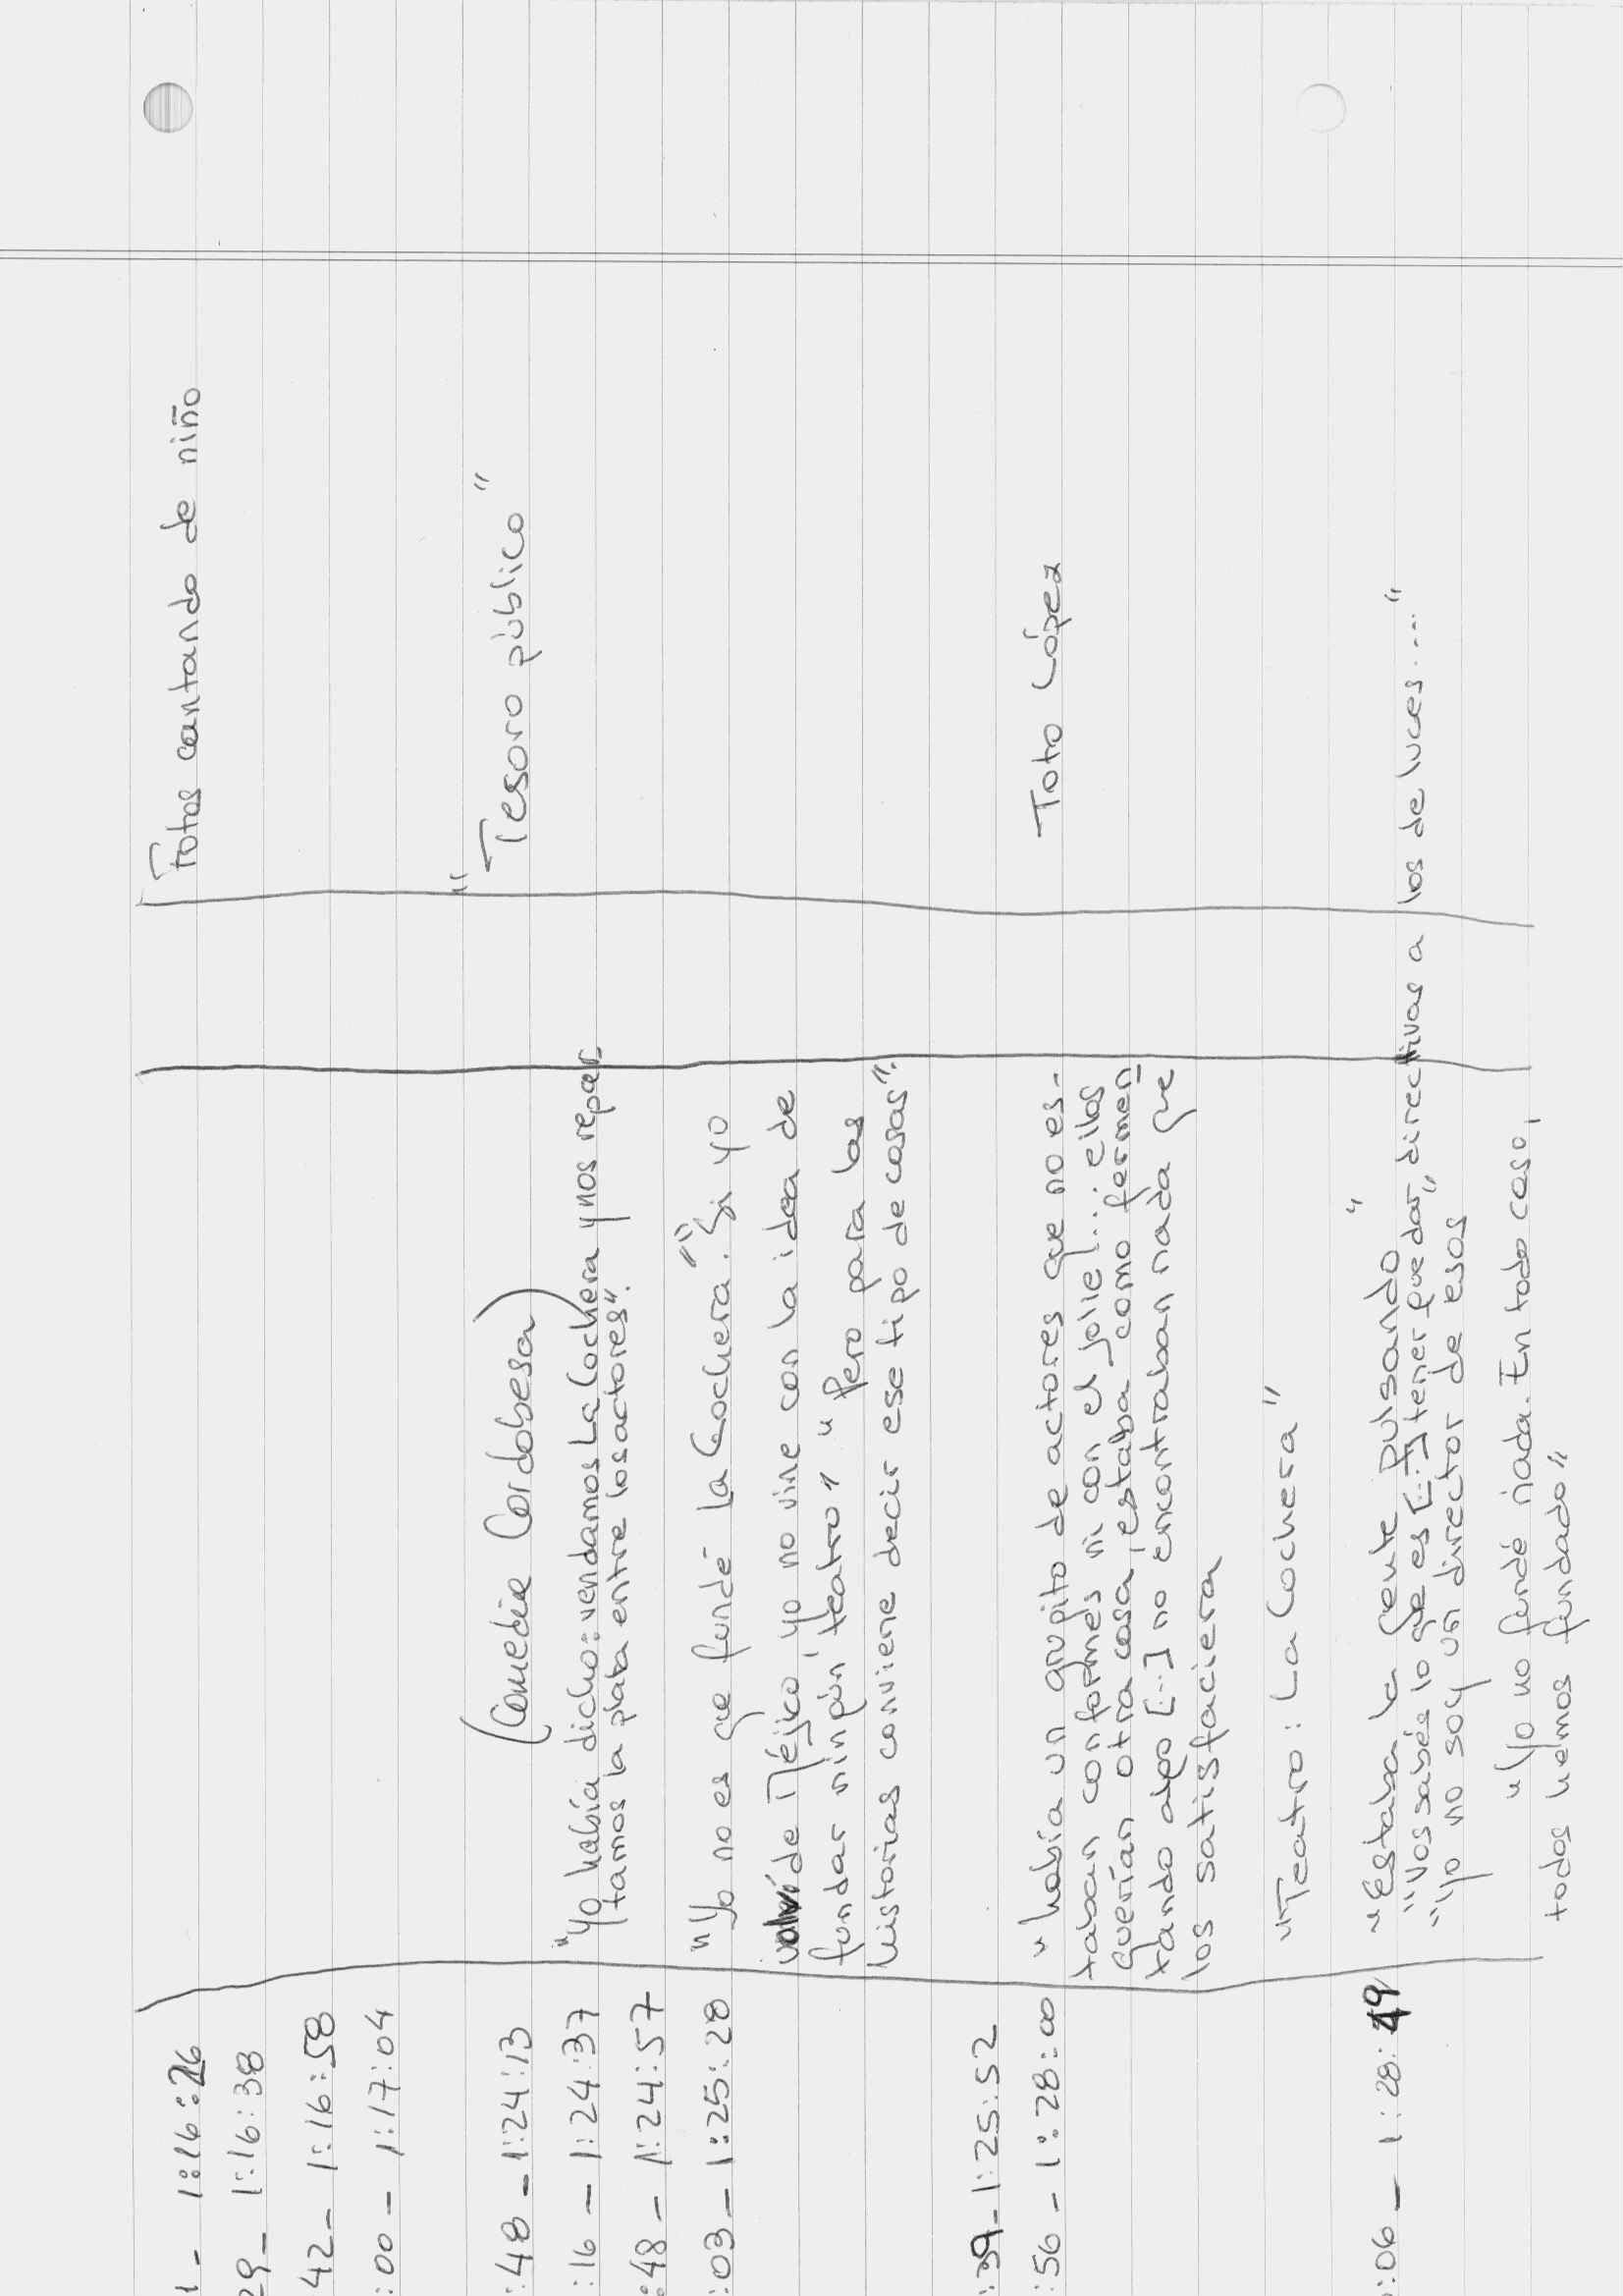 1 - 1:16:26 Fotos cantando de niño
29 - 1:16:38
42 - 1:16:58
:00 - 1:17:04
:48 - 1:24:13 (Comedia Cordobesa) "Tesoro público"
:16 - 1:24:37 "Yo había dicho: vendamos La Cochera y nos repar
tamos la plata entre los actores".
:48 - 1:24:57
:03 - 1:25:28 "Yo no es que fundé la Cochera". "Si yo
volví de Méjico, yo no vine con la idea de
fundar ningún teatro" "Pero para las
historias conviene decir ese tipo de cosas".
:39 - 1:25:52
:56 - 1:28:00 "había un grupito de actores que no es- Toto López
taban conformes ni con el Jolie [... ellos
querían otra cosa, estaba como fermen
tando algo [...] no encontraban nada que
los satisfaciera
"Teatro: La Cochera"
:06 - 1:28:49 "Estaba la gente pulsando"
"Vos sabés lo que es [...] tener que dar directivas a los de luces...."
"yo no soy un director de esos"
"Yo no fundé nada. En todo caso,
todos hemos fundado"